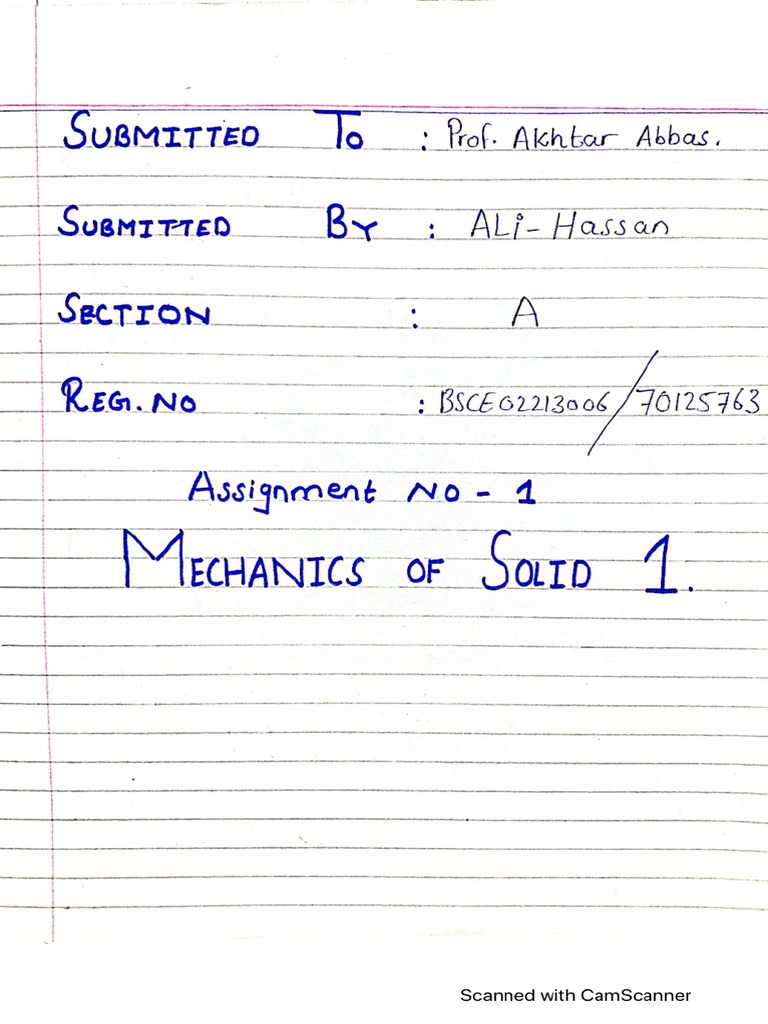 SUBMITTED TO : Prof. Akhtar Abbas.
SUBMITTED BY : ALi-Hassan
SECTION : A
REG.NO : BSCE02213006/70125763
Assignment NO - 1
MECHANICS OF SOLID 1.
Scanned with CamScanner